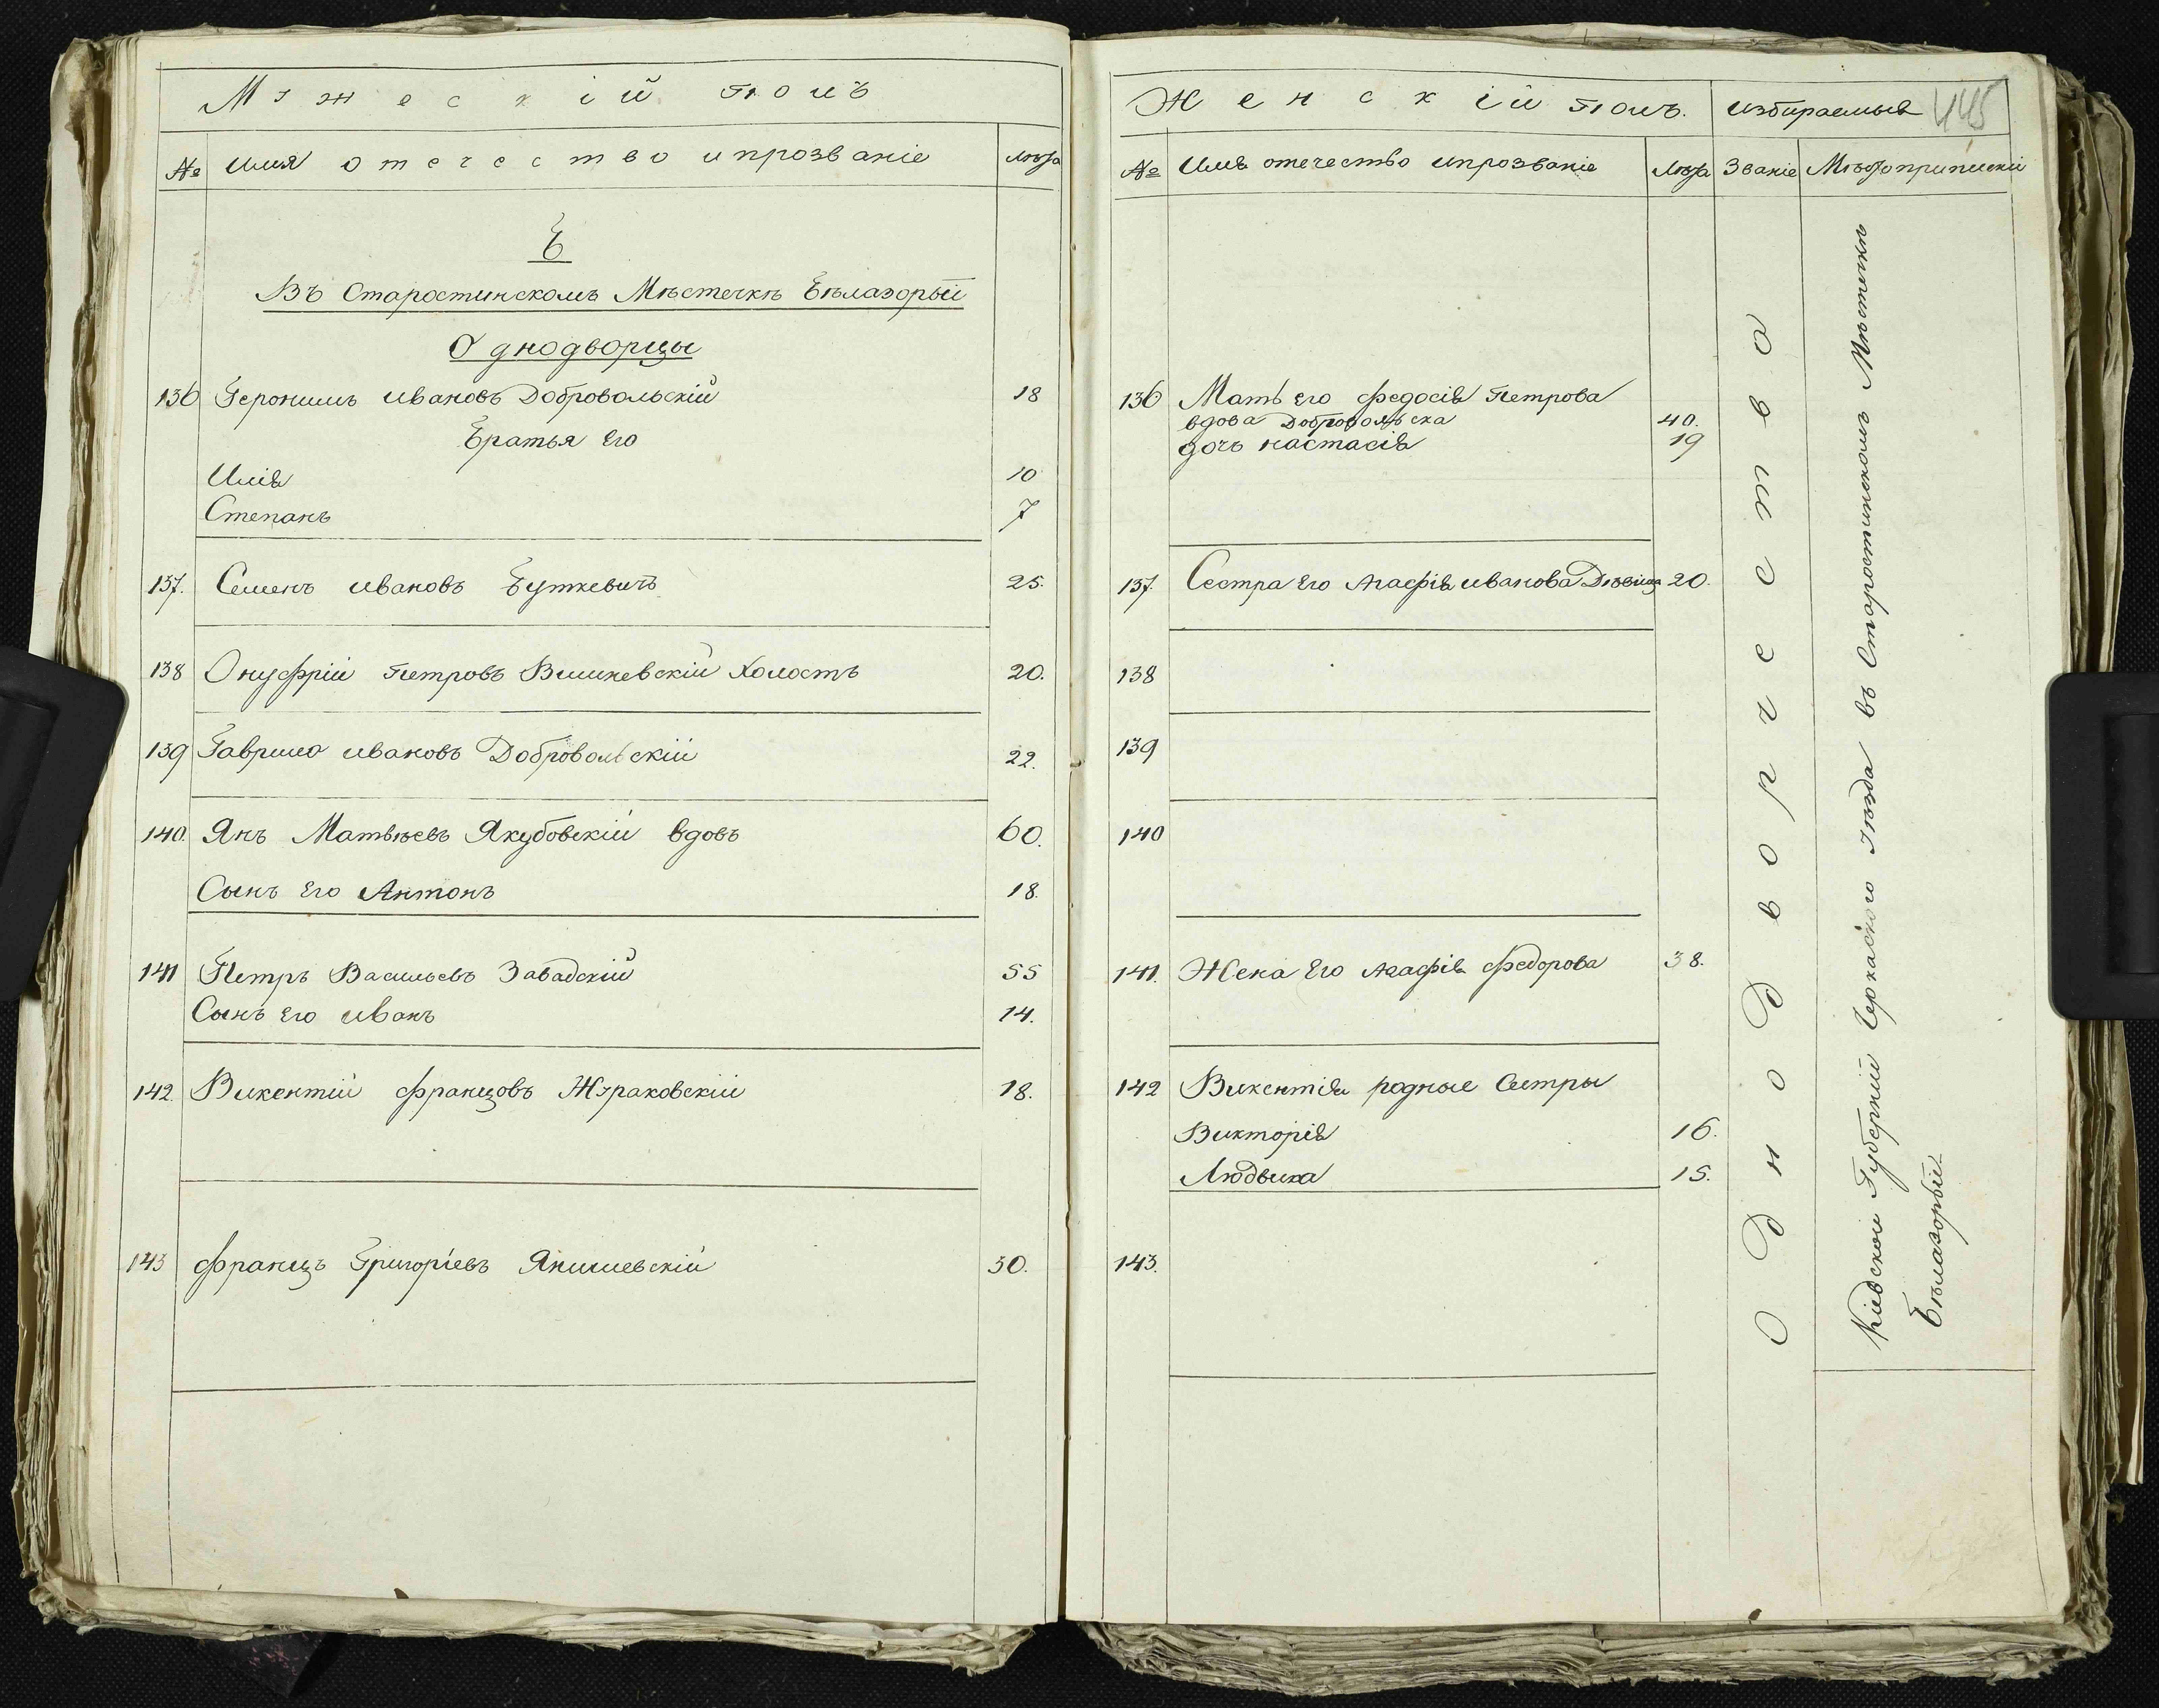 Мужескій полъ
№ Имя отечество и прозваніе Лѣта
Б
Въ Старостинскомъ Мѣстечкѣ Бѣлазорьи
Однодворцы
136 Геронимъ Ивановъ Добровольскій 18
Братья Его
Илія 10
Степанъ 7
137. Семенъ Ивановъ Буткевичъ 25.
138 Онуфрій Петровъ Вишневскій Холостъ 20.
139 Гаврило Ивановъ Добровольскій 22.
140. Янъ Матвѣевъ Якубовскій вдовъ 60.
Сынъ Его Антонъ 18.
141 Петръ Васильевъ Завадскій 55
Сынъ Его Иванъ 14.
142. Викентій Францовъ Жураковскій 18.
143 Францъ Григоріевъ Янишевскій 30.
Женскій полъ. Избираемыя 445
№ Имя отечество и прозваніе Лѣта Званіе Мѣсто приписки
136 Мать Его Федосія Петрова
вдова Добровольска 40.
дочь Настасія 19
137. Сестра Его Агафія Иванова Дѣвица 20.
138
139
140
141. Жена Его Агафія Федорова 38.
142 Викентія родные Сестры
Викторія 16.
Людвика 15.
143.
Однодворчество
Кіевской Губерніи Черкаского уѣзда въ Старостинскомъ Мѣстечкѣ
Бѣлазорьи